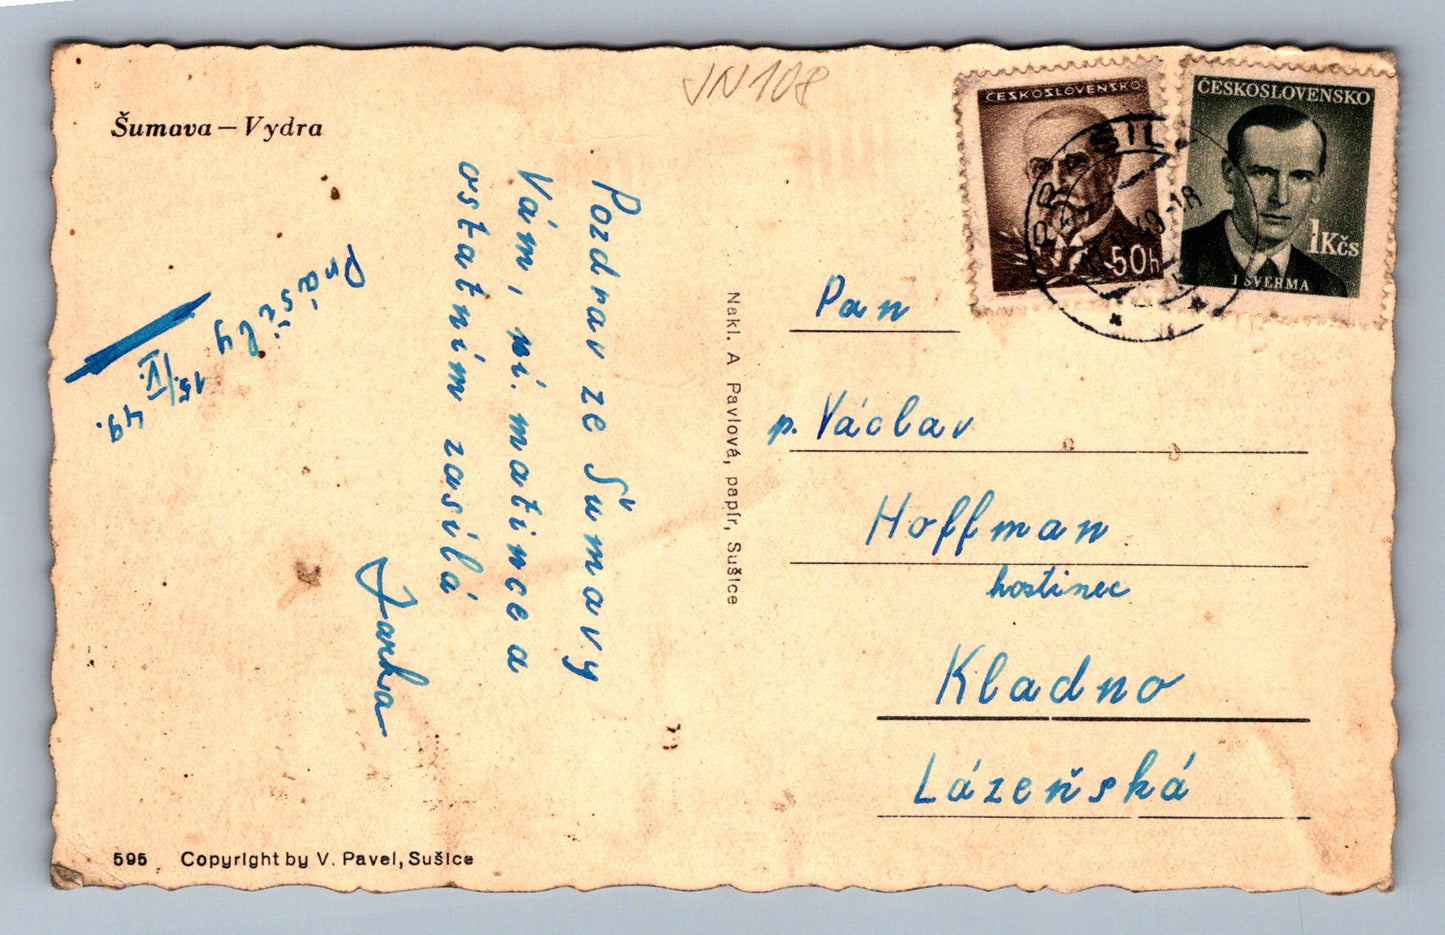 JN 108
Šumava — Vydra
ČESKOSLOVENSKO
50h
ČESKOSLOVENSKO
1Kčs
J ŠVERMA
PRÁŠIL
49-18
Prášily
15./IV. 49.
Pozdrav ze Šumavy
Vám, pí. matince a
ostatním zasílá
Jarka
Nakl. A Pavlová, papír, Sušice
Pan
p. Václav
Hoffman
hostinec
Kladno
Lázeňská
595 Copyright by V. Pavel, Sušice